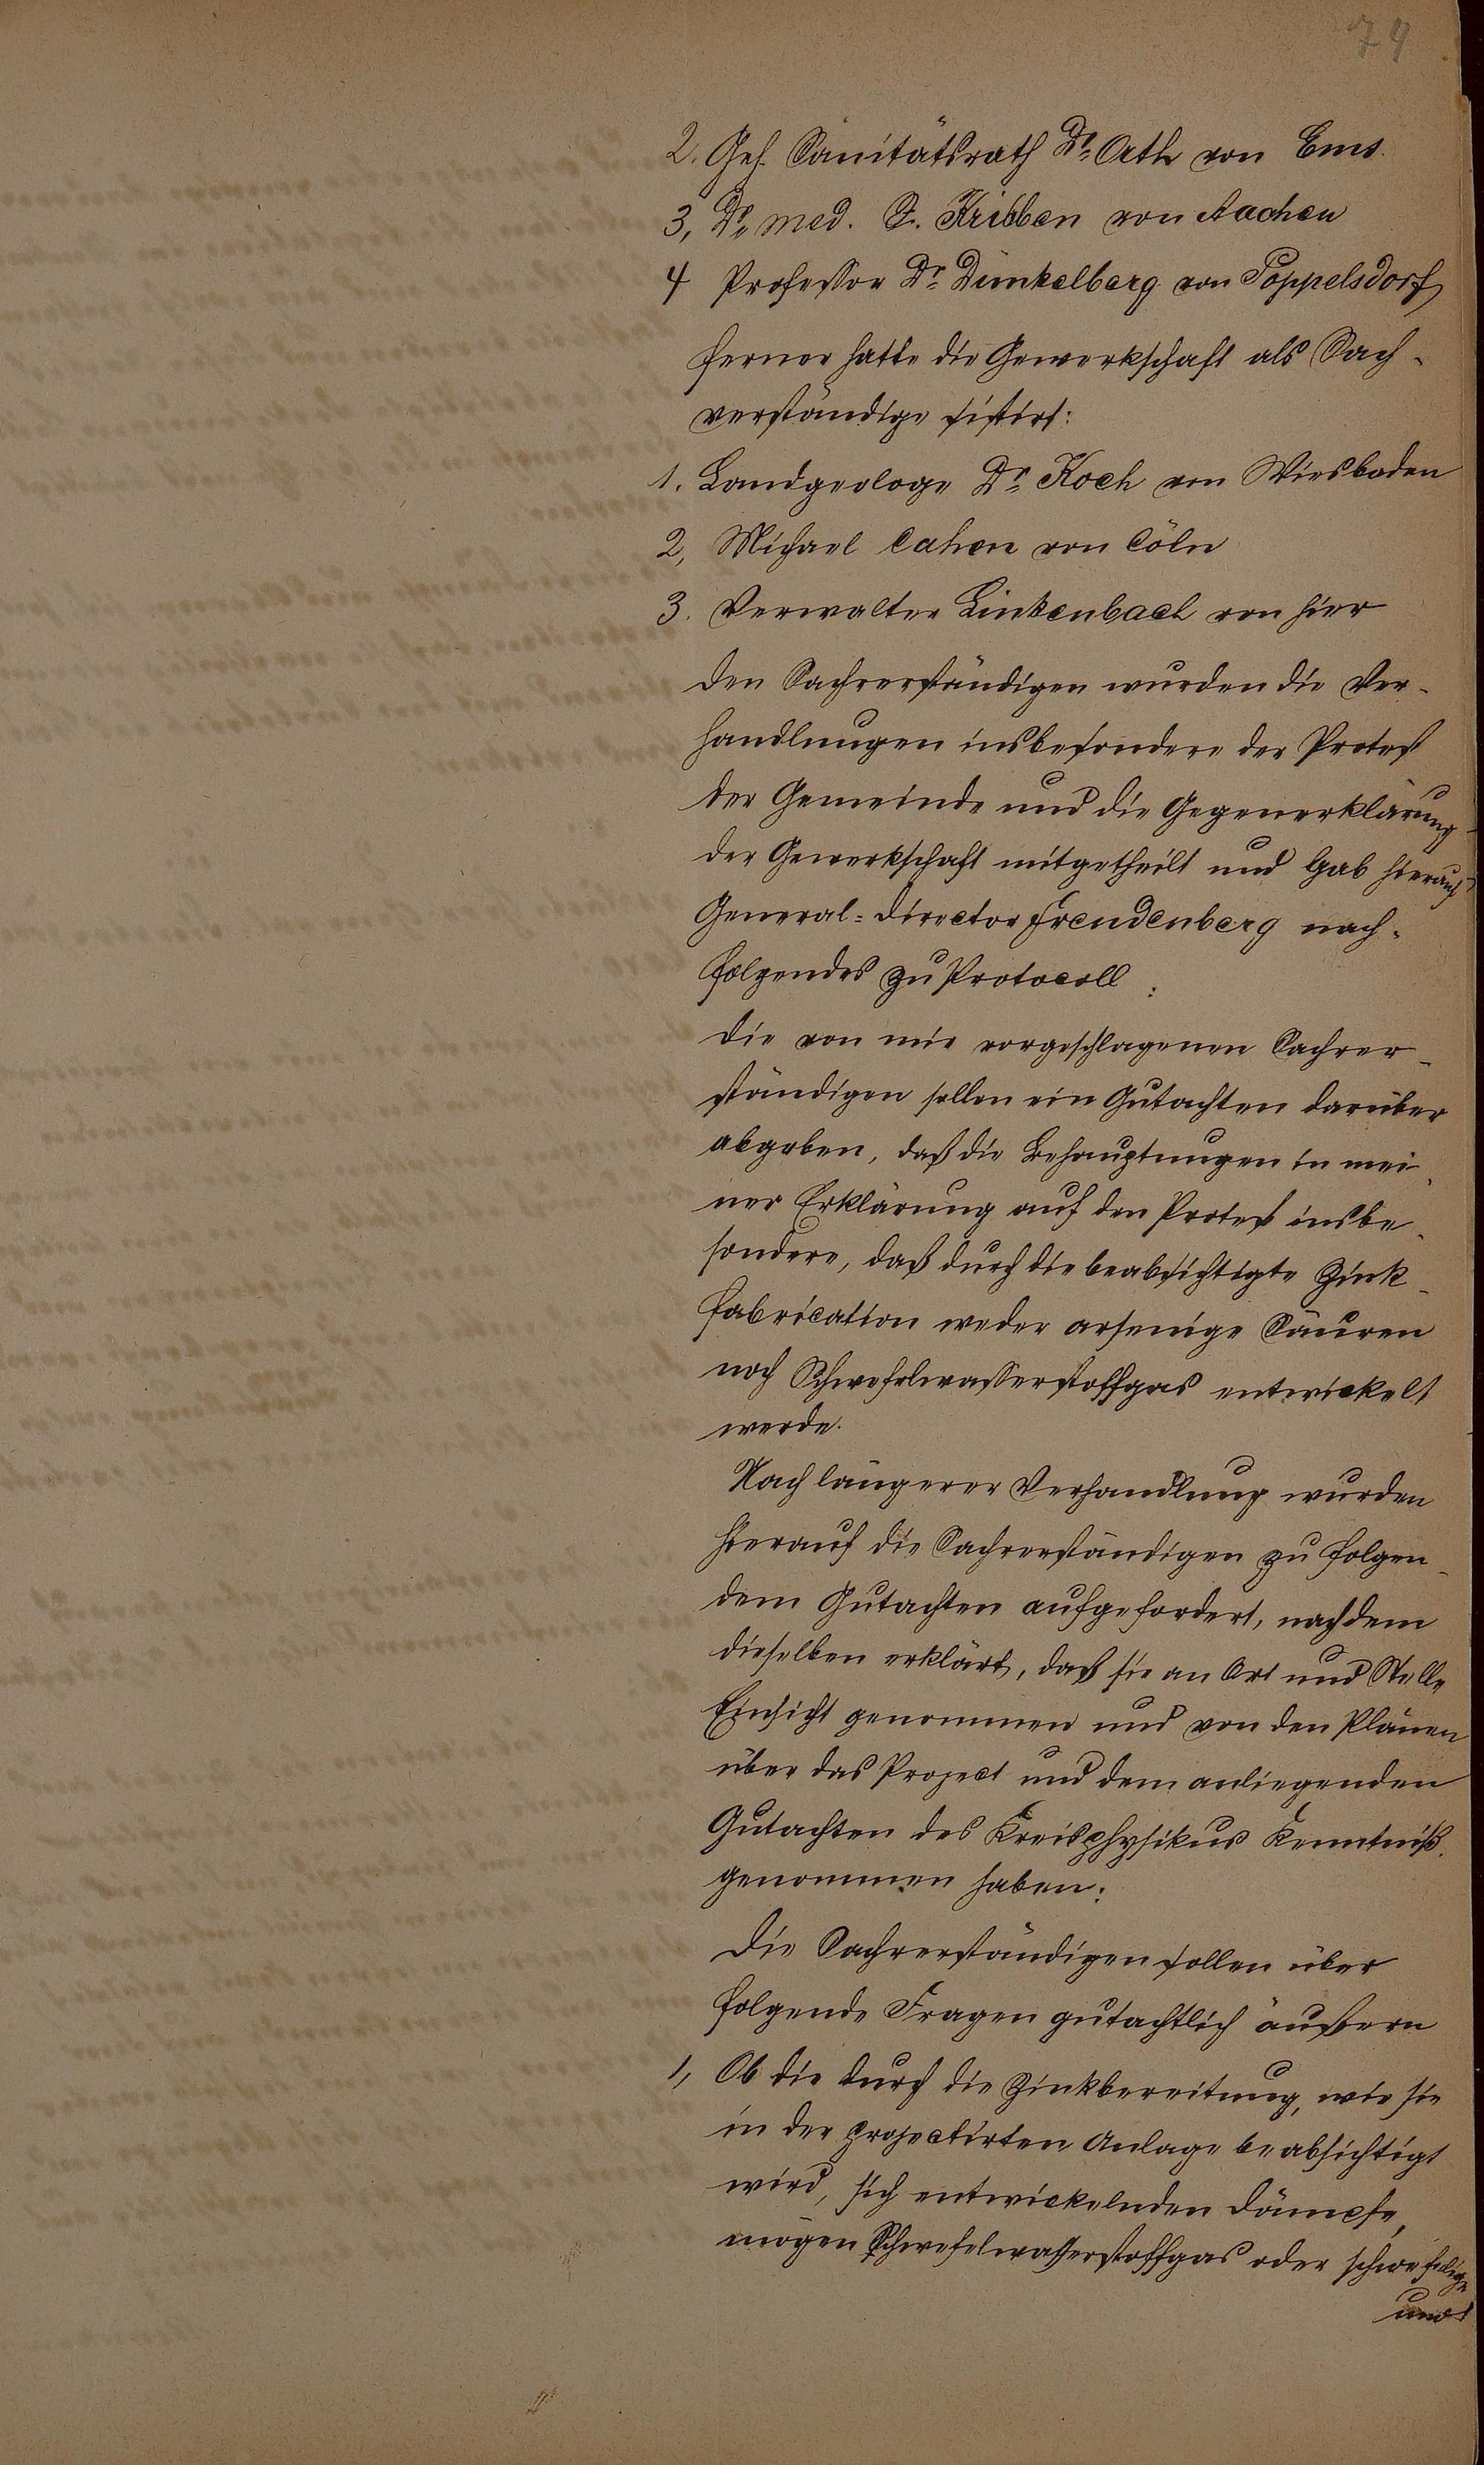 74
2. Geh. Sanitätsrath Dr. Orth von Ems.
3, Dr. med. Kribben von Aachen
4 Professor Dr. Dünkelberg von Poppelsdorf
ferner hatte die Gewerkschaft als Sach-
verständige sistirt:
1. Landgeologe Dr. Koch von Wiesbaden
2, Michael Cahen von Cöln
3. Verwalter Linkenbach von hier
Den Sachverständigen wurden die Ver-
handlungen insbesondere der Protest
der Gemeinde und die Gegenerklärung
der Gewerkschaft mitgetheilt und gab hierauf
General-Director Freudenberg nach-
folgendes zu Protocoll:
Die von mir vorgeschlagenen Sachver-
ständigen sollen ein Gutachten darüber
abgeben, daß die Behauptungen in mei-
ner Erklärung auf den Protest insbe-
sondere, daß durch die beabsichtigte Zink-
fabrication weder arsenige Säuren
noch Schwefelwasserstoffgas entwickelt
werde.
Nach längerer Verhandlung wurden
hierauf die Sachverständigen zu folgen-
dem Gutachten aufgefordert, nachdem
dieselben erklärt, daß sie an Ort und Stelle
Einsicht genommen und von den Plänen
über das Project und dem anliegenden
Gutachten des Kreisphysikus Kenntniß
genommen haben:
Die Sachverständigen sollen über
folgende Fragen gutachtlich äußern
1, Ob die durch die Zinkbereitung, wie sie
in der projectirten Anlage beabsichtigt
wird, sich entwickelnden Dämpfe,
mögen Schwefelwasserstoffgas oder schweflige
und